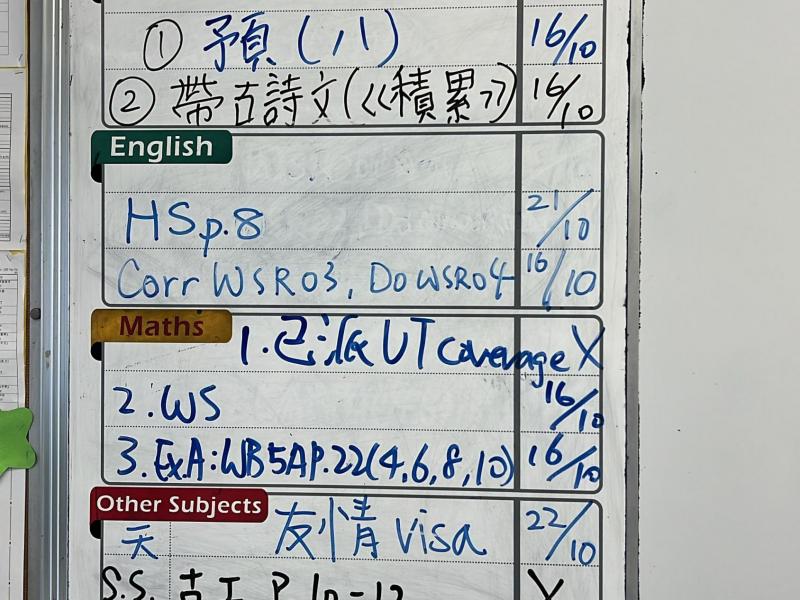 ① 預(八) 16/10
② 帶古詩文(《積累》) 16/10
English
HSp.8 21/10
Corr WSR03, Do WSR04 16/10
Maths
1.已派 UT Coverage X
2.WS 16/10
3.Ex.A:WB5AP.22(4,6,8,10) 16/10
Other Subjects
天 友情 Visa 22/10
S.S.